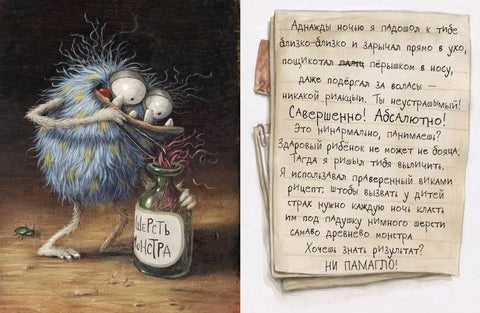 ШЕРСТЬ
МОНСТРА
Однажды ночью я падошол к тибе
близко-близко и зарычал прямо в ухо,
пощикотал пёрышком в носу,
даже подёргал за воласы –
никакой риакции. Ты неустрашымый!
САвершенно! АбсАлютно!
Это нинАрмально, панимаешь?
ЗдАровый рибёнок не может не бояца.
Тагда я ришыл тибя выличить.
Я использавал праверенный виками
рицепт: штобы вызвать у дитей
страх нужно каждую ночь класть
им под падушку нимного шерсти
самаво древнево монстра
Хочешь знать ризультат?
НИ ПАМАГЛО!